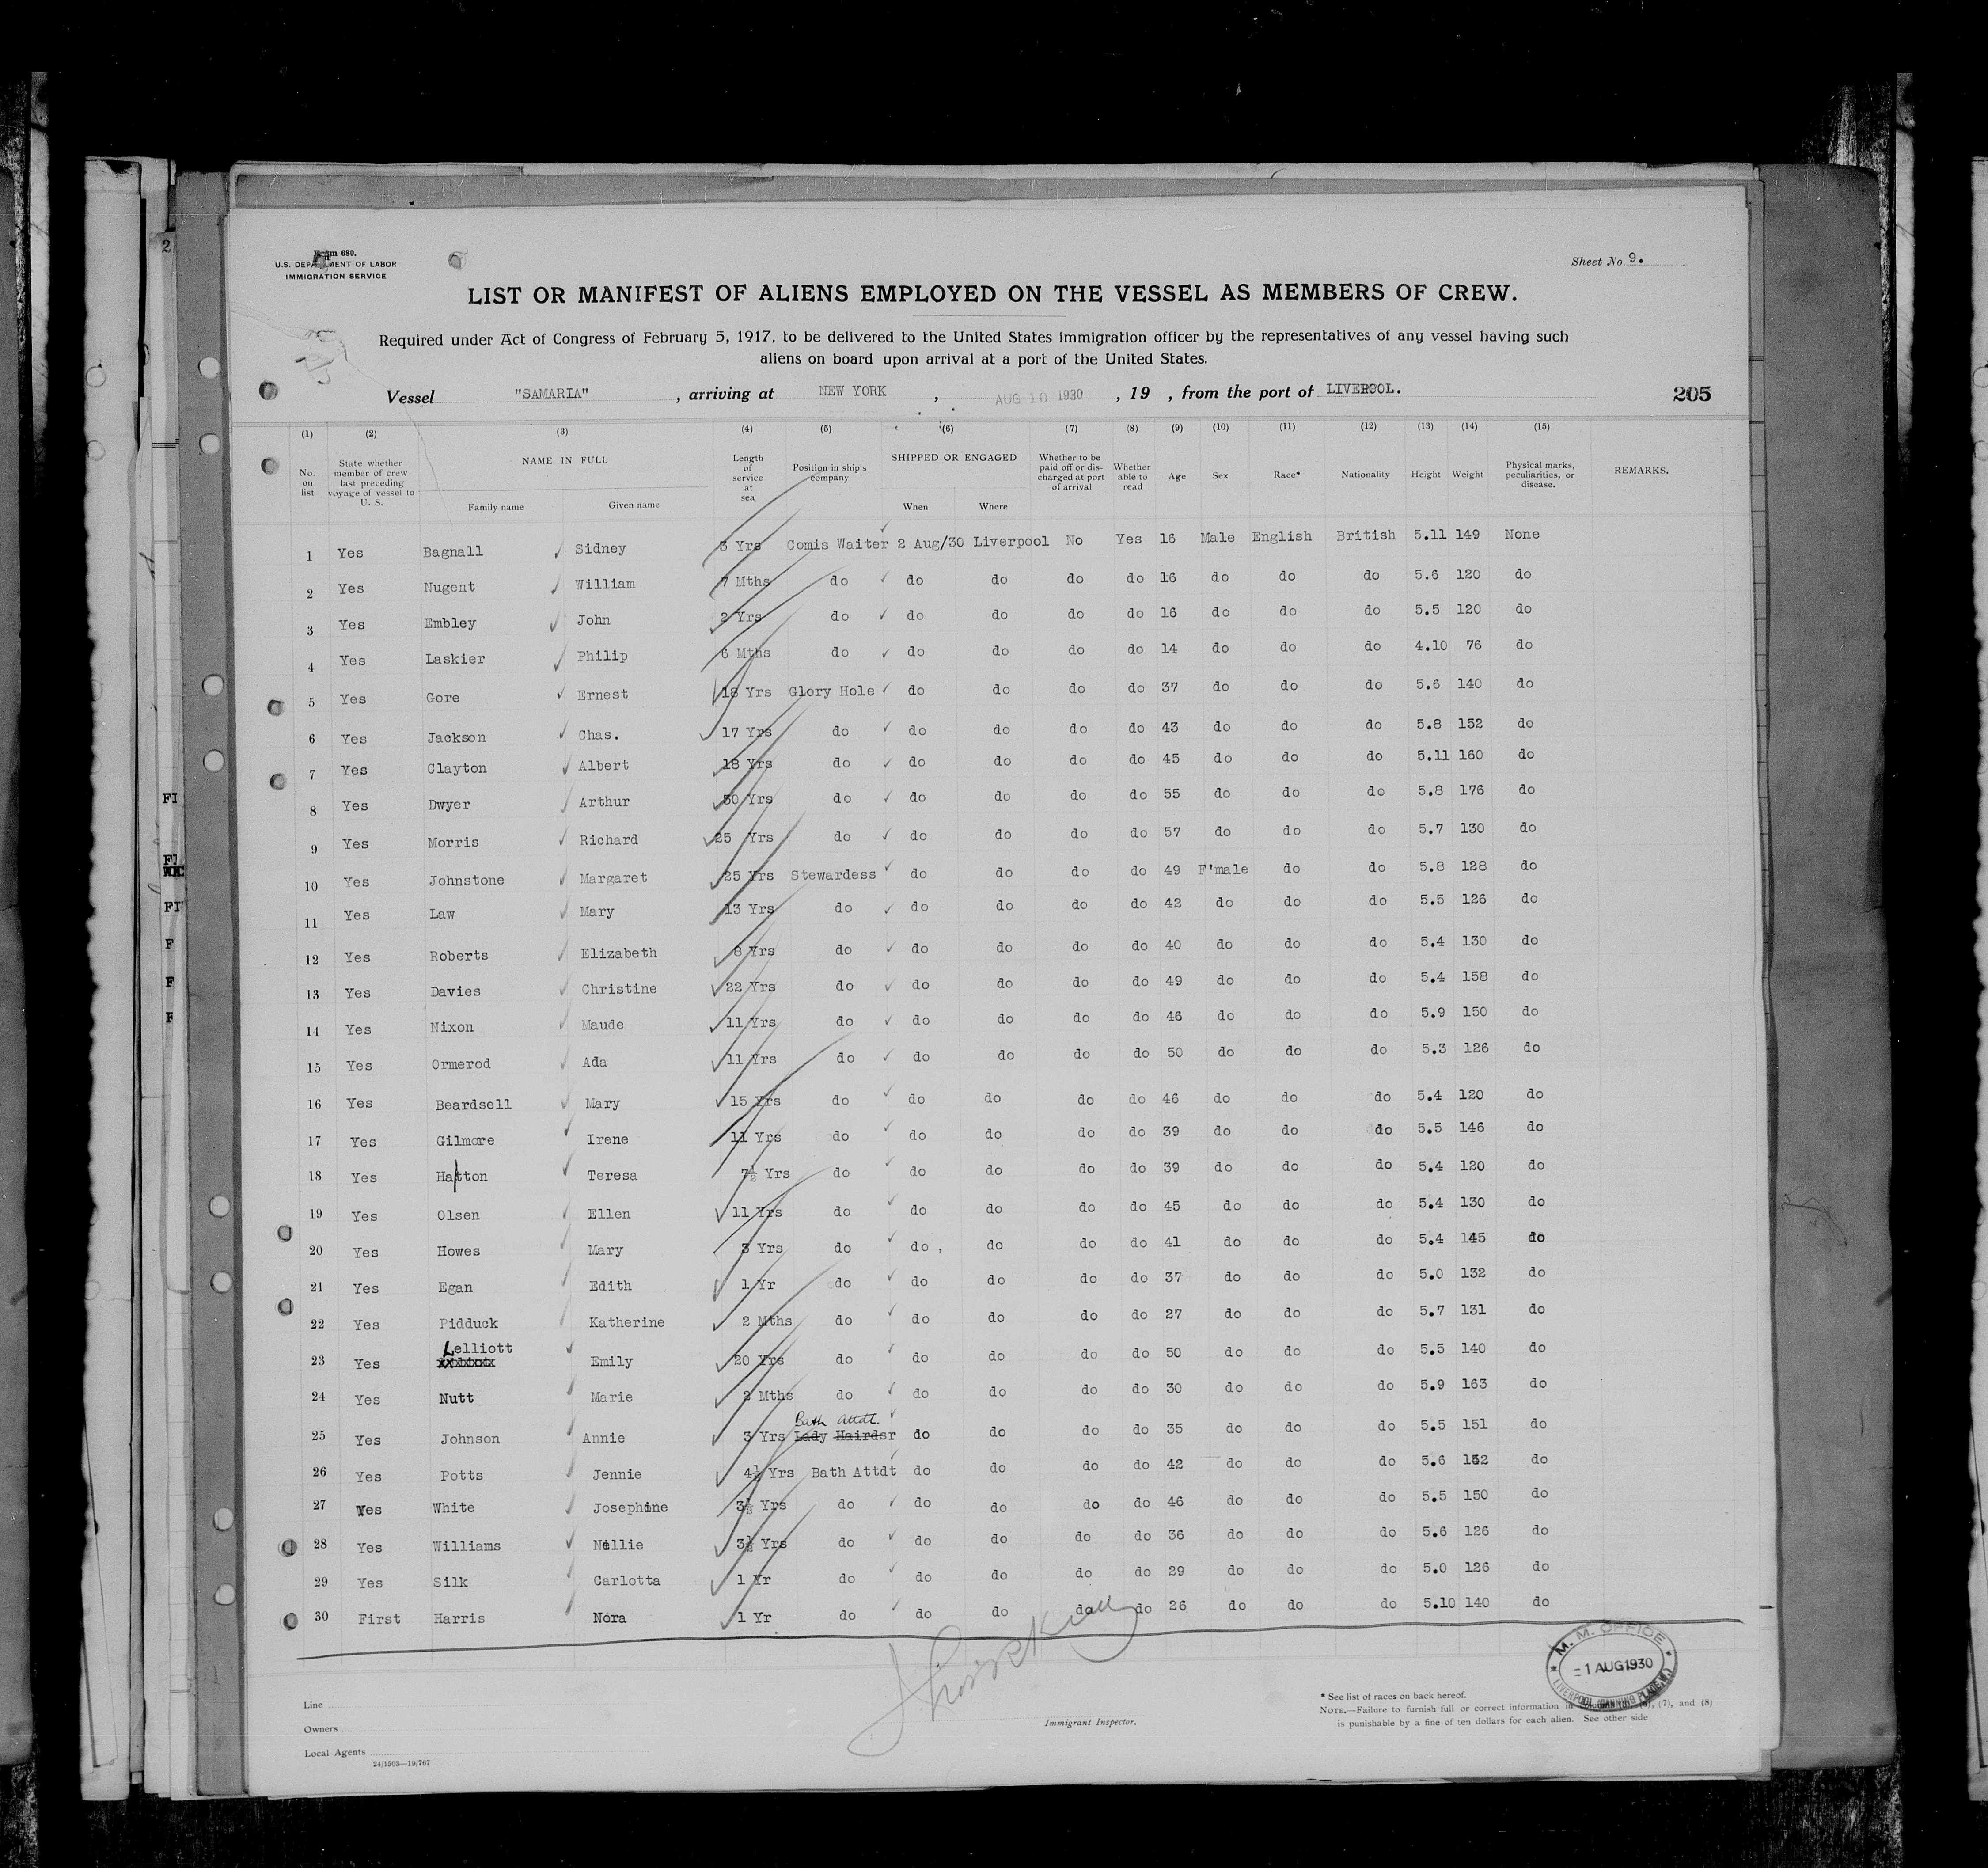 Form 680.
U.S. DEPARTMENT OF LABOR
IMMIGRATION SERVICE
Sheet No 9.
LIST OR MANIFEST OF ALIENS EMPLOYED ON THE VESSEL AS MEMBERS OF CREW.
Required under Act of Congress of February 5, 1917, to be delivered to the United States immigration officer by the representatives of any vessel having such
aliens on board upon arrival at a port of the United States.
Vessel "SAMARIA" , arriving at NEW YORK , AUG 10 1930 , 19 , from the port of LIVERPOOL. 205
(1) (2) (3) (4) (5) (6) (7) (8) (9) (10) (11) (12) (13) (14) (15)
No. on list State whether member of crew last preceding voyage of vessel to U. S. NAME IN FULL Family name Given name Length of service at sea Position in ship's company SHIPPED OR ENGAGED When Where Whether to be paid off or discharged at port of arrival Whether able to read Age Sex Race* Nationality Height Weight Physical marks, peculiarities, or disease. REMARKS.
1 Yes Bagnall Sidney 3 Yrs Comis Waiter 2 Aug/30 Liverpool No Yes 16 Male English British 5.11 149 None
2 Yes Nugent William 7 Mths do do do do do 16 do do do 5.6 120 do
3 Yes Embley John 2 Yrs do do do do do 16 do do do 5.5 120 do
4 Yes Laskier Philip 6 Mths do do do do do 14 do do do 4.10 76 do
5 Yes Gore Ernest 18 Yrs Glory Hole do do do do 37 do do do 5.6 140 do
6 Yes Jackson Chas. 17 Yrs do do do do do 43 do do do 5.8 152 do
7 Yes Clayton Albert 18 Yrs do do do do do 45 do do do 5.11 160 do
8 Yes Dwyer Arthur 30 Yrs do do do do do 55 do do do 5.8 176 do
9 Yes Morris Richard 25 Yrs do do do do do 57 do do do 5.7 130 do
10 Yes Johnstone Margaret 25 Yrs Stewardess do do do do 49 F'male do do 5.8 128 do
11 Yes Law Mary 13 Yrs do do do do do 42 do do do 5.5 126 do
12 Yes Roberts Elizabeth 8 Yrs do do do do do 40 do do do 5.4 130 do
13 Yes Davies Christine 22 Yrs do do do do do 49 do do do 5.4 158 do
14 Yes Nixon Maude 11 Yrs do do do do do 46 do do do 5.9 150 do
15 Yes Ormerod Ada 11 Yrs do do do do do 50 do do do 5.3 126 do
16 Yes Beardsell Mary 15 Yrs do do do do do 46 do do do 5.4 120 do
17 Yes Gilmore Irene 11 Yrs do do do do do 39 do do do 5.5 146 do
18 Yes Hatton Teresa 7½ Yrs do do do do do 39 do do do 5.4 120 do
19 Yes Olsen Ellen 11 Yrs do do do do do 45 do do do 5.4 130 do
20 Yes Howes Mary 3 Yrs do do , do do do 41 do do do 5.4 145 do
21 Yes Egan Edith 1 Yr do do do do do 37 do do do 5.0 132 do
22 Yes Pidduck Katherine 2 Mths do do do do do 27 do do do 5.7 131 do
23 Yes Lelliott Emily 20 Yrs do do do do do 50 do do do 5.5 140 do
24 Yes Nutt Marie 2 Mths do do do do do 30 do do do 5.9 163 do
Bath Attdt.
25 Yes Johnson Annie 3 Yrs Lady Hairdsr do do do do 35 do do do 5.5 151 do
26 Yes Potts Jennie 4½ Yrs Bath Attdt do do do do 42 do do do 5.6 152 do
27 Yes White Josephine 3½ Yrs do do do do do 46 do do do 5.5 150 do
28 Yes Williams Nellie 3½ Yrs do do do do do 36 do do do 5.6 126 do
29 Yes Silk Carlotta 1 Yr do do do do do 29 do do do 5.0 126 do
30 First Harris Nora 1 Yr do do do do do 26 do do do 5.10 140 do
M. M. OFFICE
1 AUG 1930
LIVERPOOL (CANNING PLACE)
Line
Owners
Local Agents
24/1503—19/767
Immigrant Inspector.
* See list of races on back hereof.
NOTE.—Failure to furnish full or correct information in (7), and (8)
is punishable by a fine of ten dollars for each alien. See other side